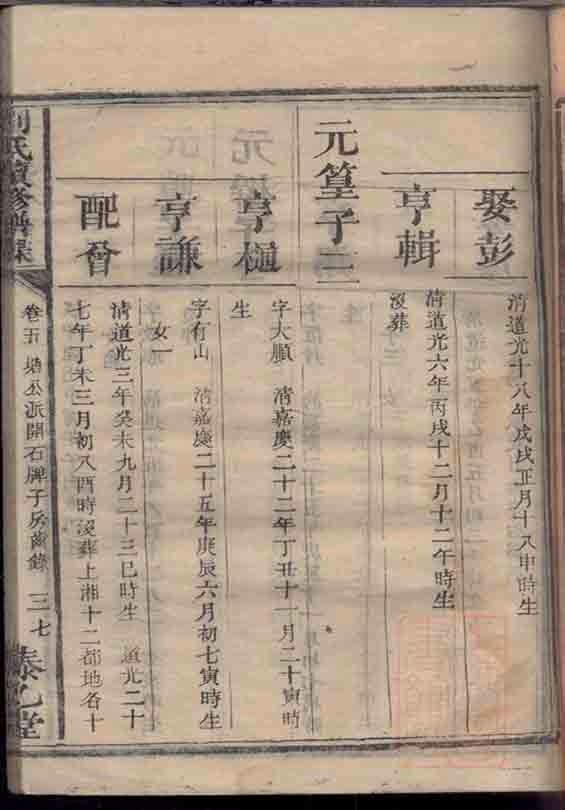 娶彭
清道光十八年戊戌正月十八申時生
亨輯
清道光六年丙戌十二月十二午時生
沒葬
元篁子三
亨樋
字大順 清嘉慶二十二年丁丑十一月二十寅時
生
亨謙
字有山 清嘉慶二十五年庚辰六月初七寅時生
女一
配胥
清道光三年癸未九月二十三巳時生 道光二十
七年丁未三月初八酉時沒葬上湘十二都地名十
劉氏續修譜牒
卷五 塘公派開石牌子房齒錄 三七
泰乙堂